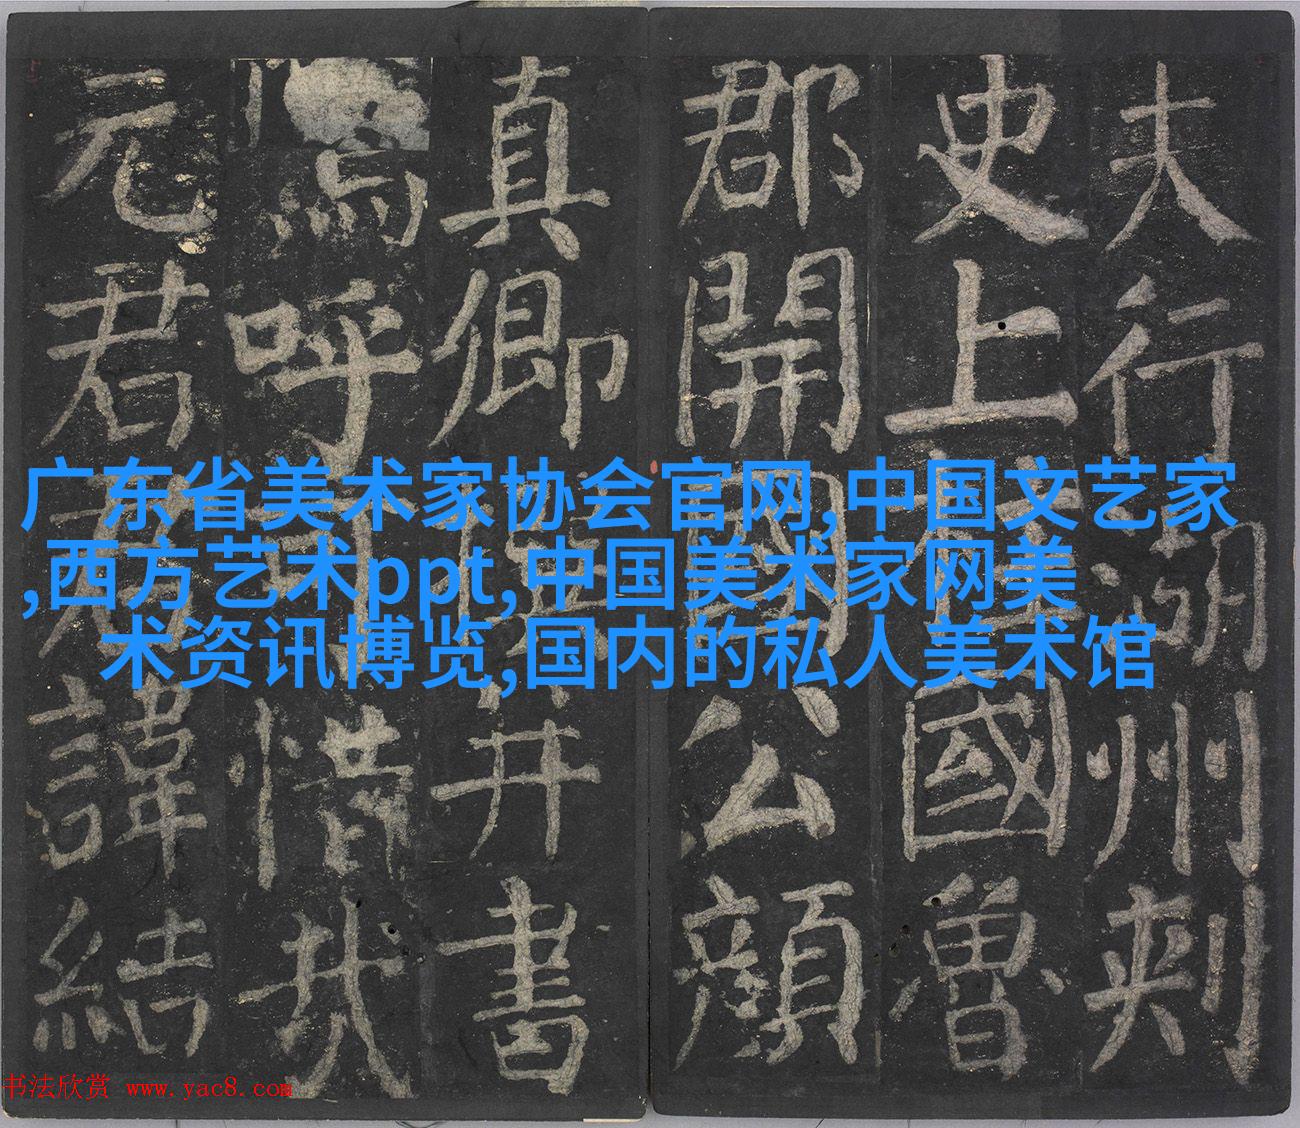 夫行湖州刺
史上柱國魯
郡開國公顏
真卿并書
嗚呼惜哉
元君君諱結
广东省美术家协会官网,中国文艺家
,西方艺术ppt,中国美术家网美
术资讯博览,国内的私人美术馆
书法欣赏 www.yac8.com